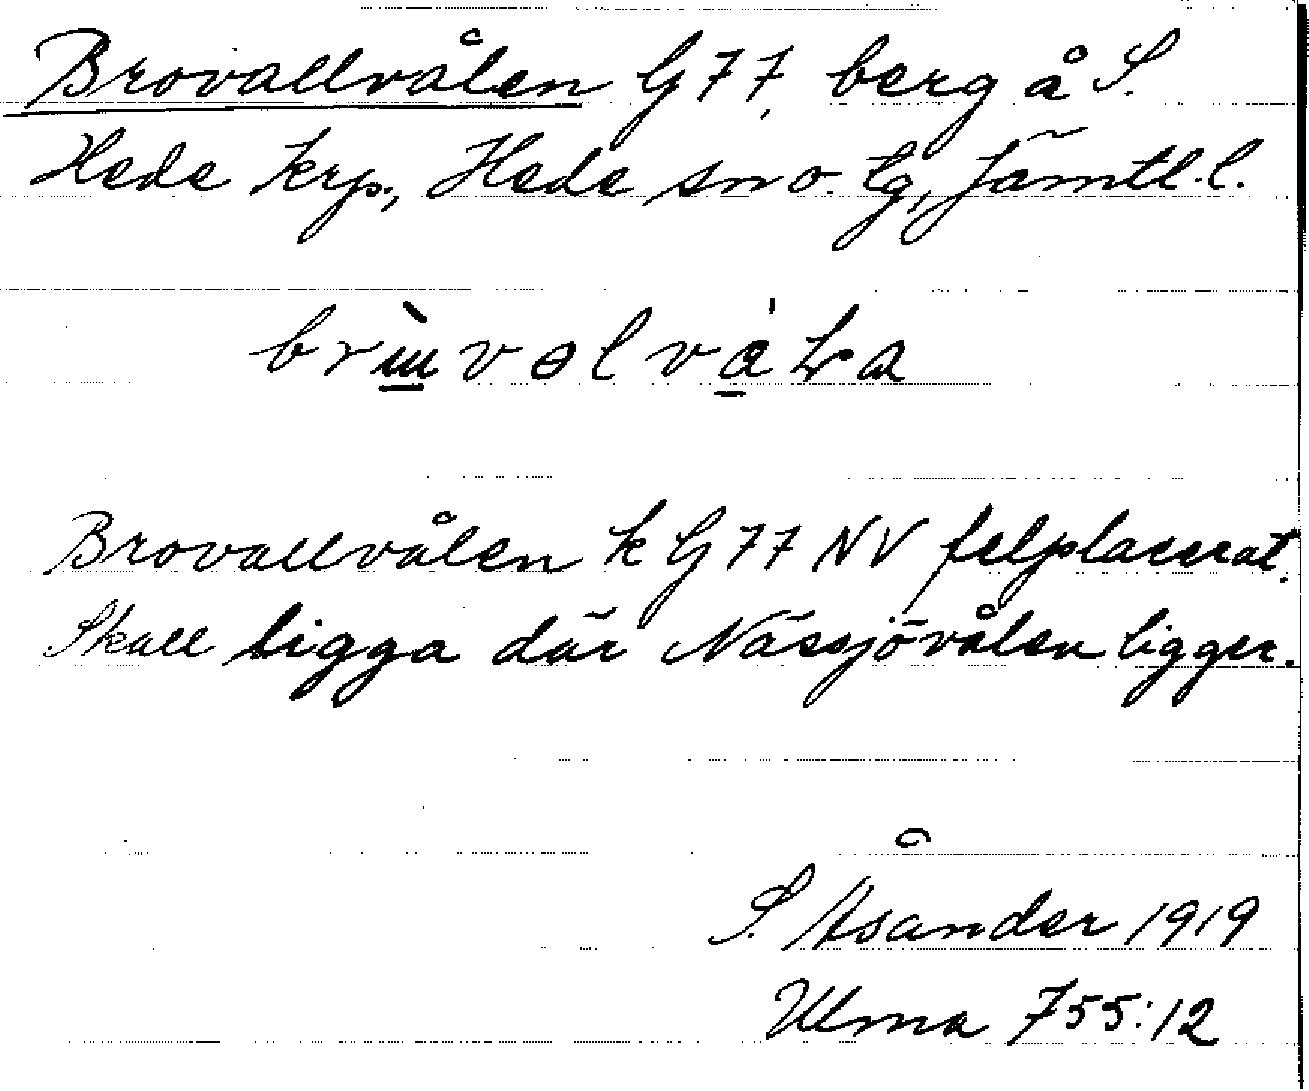 Brovallvålen G77, berg å S.
Hede krp., Hede sn o. lg, Jämtl. l.
Brovallvålen k G77 NV felplacerat.
Skall ligga där Nässjövålen ligger.
S. Åsander 1919
Ulma 755:12